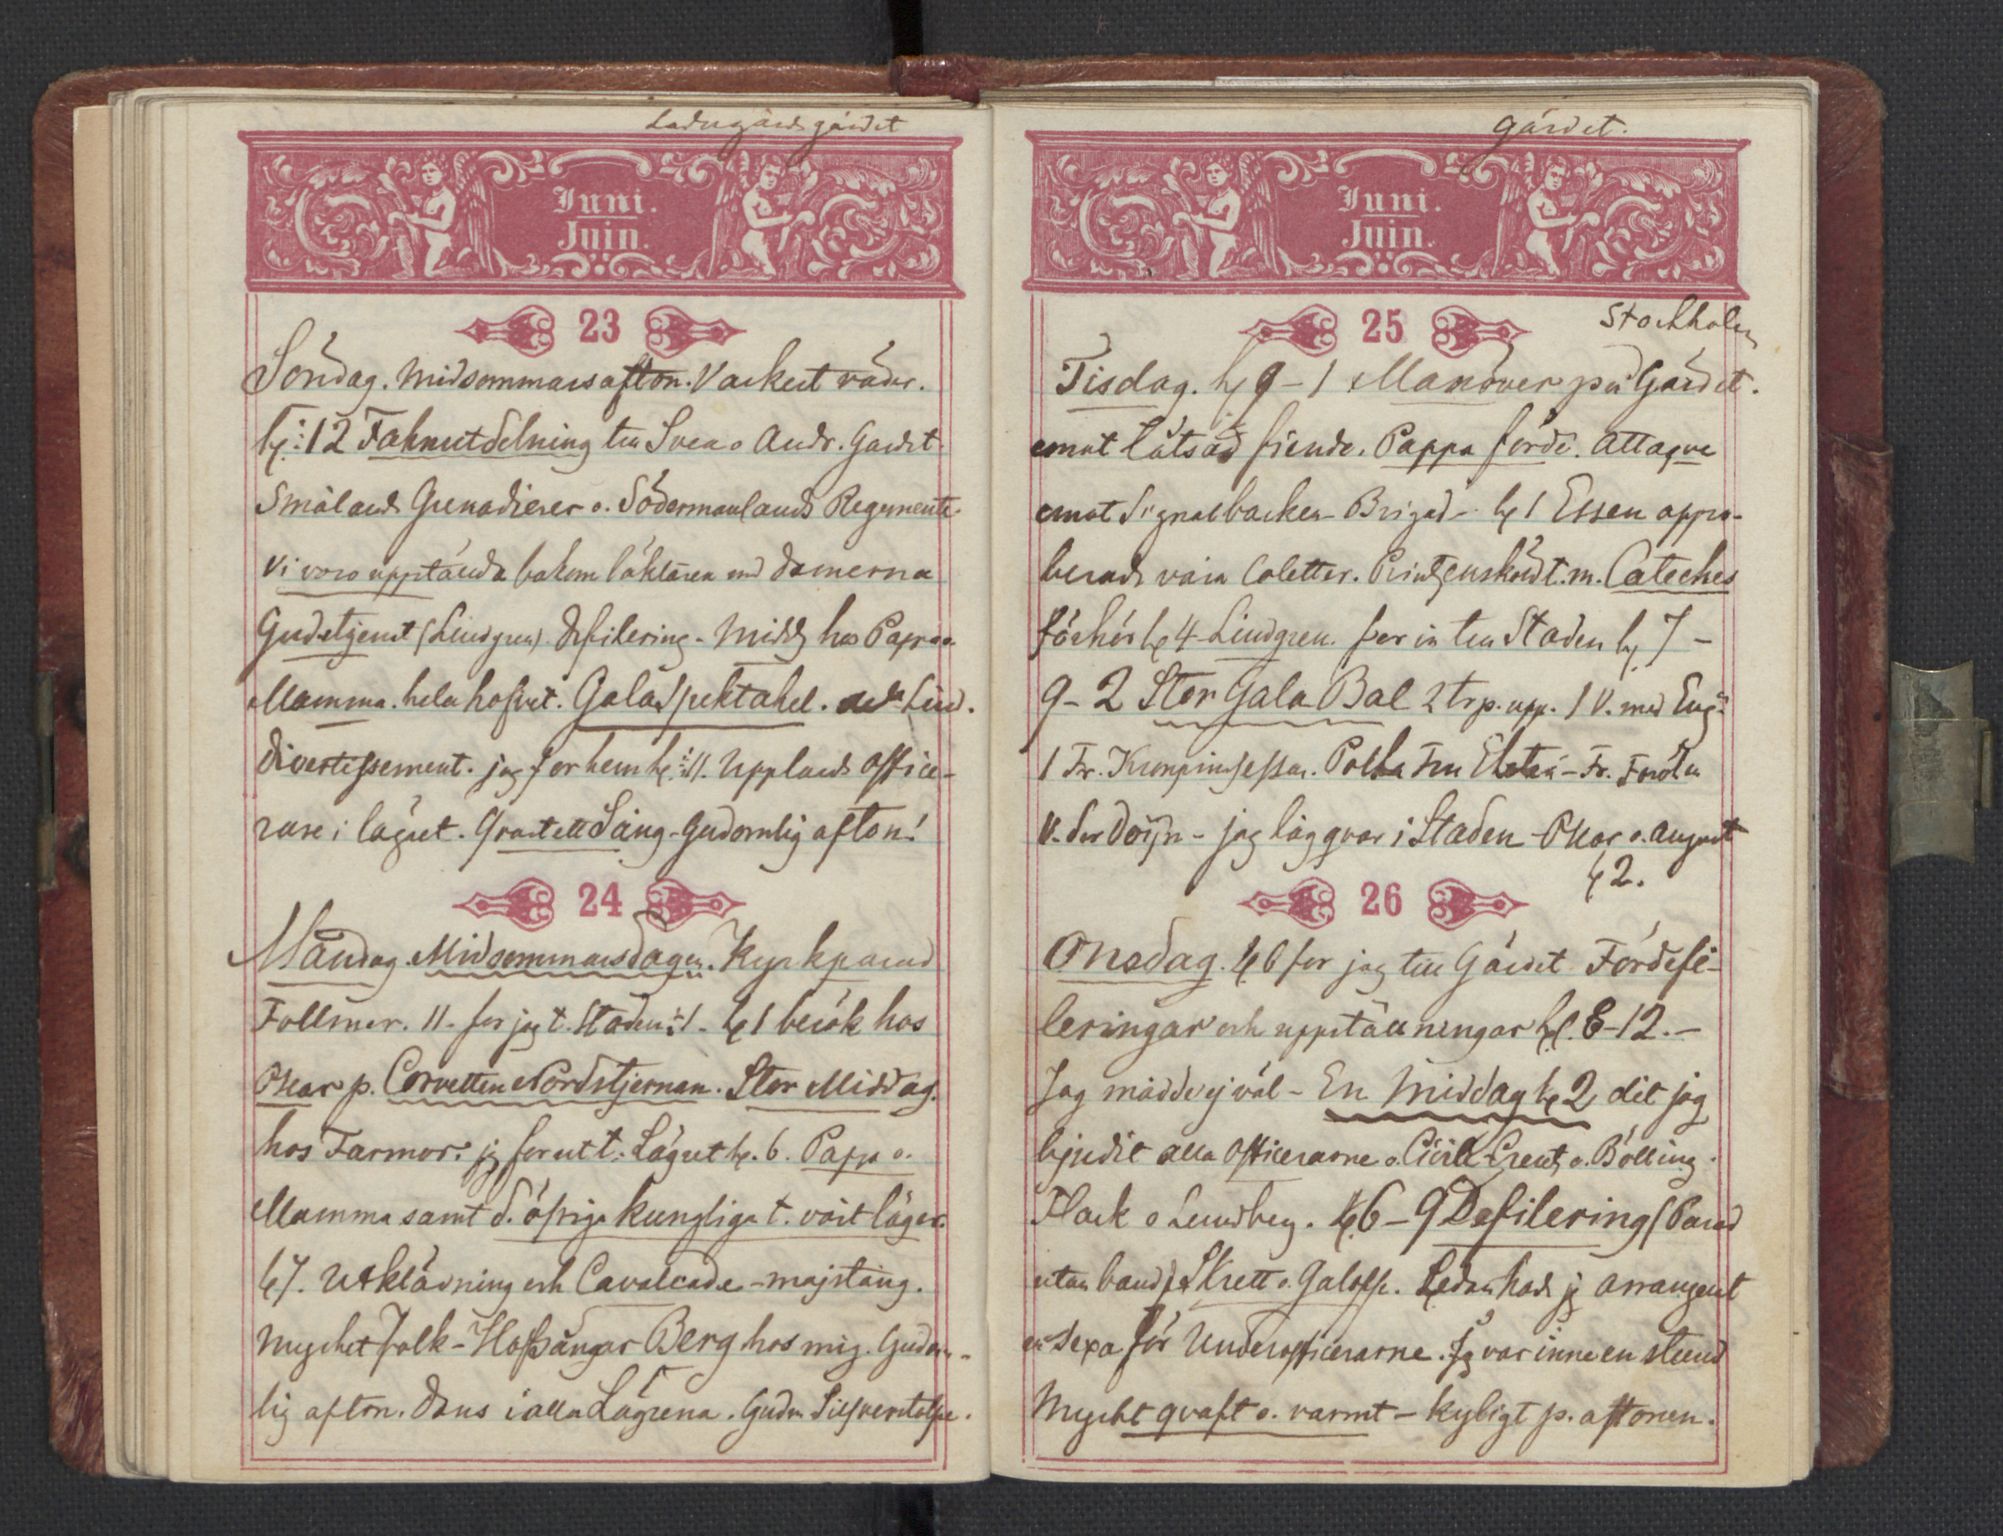 Ladugårdsgärdet
Juni.
Juin.
23
Söndag. Midsommarsafton. Vackert väder.
kl: 12 Fahnutdelning till Svea o Andr. Gardet
Smålands Grenadierer o. Södermanlands Regemente.
Vi voro uppstända bakom läktaren med damerna
Gudstjenst (Lindgren) Defilering - Midd hos Pappa o
Mamma. hela hofvet. Gala Spektakel.
Divertissement. jag for hem kl: 11. Upplands Office-
rare i lägret. Qvartett Sång - Gudomlig afton!
24
Måndag. Midsommarsdagen. Kyrkparad
Follmer. 11 - for jag t. Staden - kl 1 besök hos
Oskar p. Corvetten Nordstjernan. Stor Middag.
hos Farmor. jg for ut t. Lägret kl. 6. Pappa o.
Mamma samt d. öfriga kungliga t. vårt läger.
kl 7. Utklädning och Cavalcade - majstång.
Mycket folk - Hofsångar Berg hos mig. Gudom-
lig afton. Dans i alla Lägrena. Gudm. Silfverstolpe.
Gärdet.
Juni.
Juin.
25
Stockholm
Tisdag. kl 9 - 1 Manöver på Gärdet.
emot låtsad fiende. Pappa förde. Attaque
emot Signalbacken - Brigad - kl 1 Essen appro-
berade våra Coletter. Printzensköld t. m. Cateches
förhör kl 4 Lindgren. for in till Staden kl 7 -
9 - 2 Stor Gala Bal 2 trp. upp. 1 V. med Eug:
1 Fr. Kronprinsessan. Polka Fru - Fr. Frölen
V. der Doijn - jag låg qvar i Staden - Oskar o. August
kl 2.
26
Onsdag. kl 6 for jag till Gärdet Fördefi-
leringar och uppställningar kl. 8-12. -
Jag mådde ej väl - En Middag kl 2 dit jag
bjudit alla Officerarne o. Creutz o. Bölling.
Flack o Lundberg. kl 6 - 9 Defilering (Parad
utan band) Skrett o. Galopp. Sedan hade jg arrangerat
en Sexa för Underofficerarne. Jg var inne en stund
Mycket qvaft o. varmt - kyligt p. aftonen.